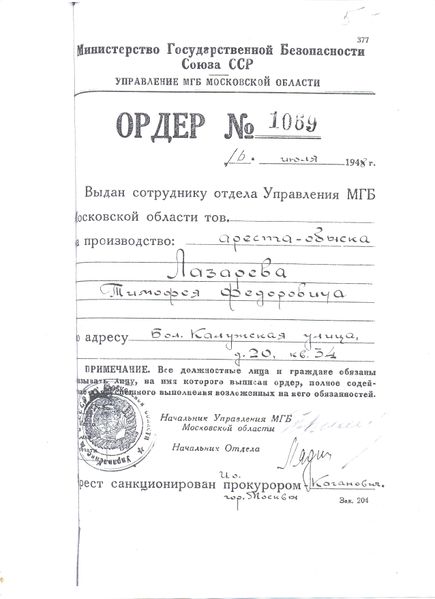 5-
377
Министерство Государственной Безопасности
Союза ССР
УПРАВЛЕНИЕ МГБ МОСКОВСКОЙ ОБЛАСТИ
ОРДЕР № 1069
16. июля 1948 г.
Выдан сотруднику отдела Управления МГБ
осковской области тов.
а производство: ареста-обыска
Лазарева
Тимофея Федоровича
о адресу Бол. Калужская улица,
д. 20, кв. 34
ПРИМЕЧАНИЕ. Все должностные лица и граждане обязаны
зывать лицу, на имя которого выписан ордер, полное содей-
выполнения возложенных на него обязанностей.
Начальник Управления МГБ
Московской области
Начальник Отдела
рест санкционирован И.о. прокурором Коганович.
гор. Москвы
Зак. 204